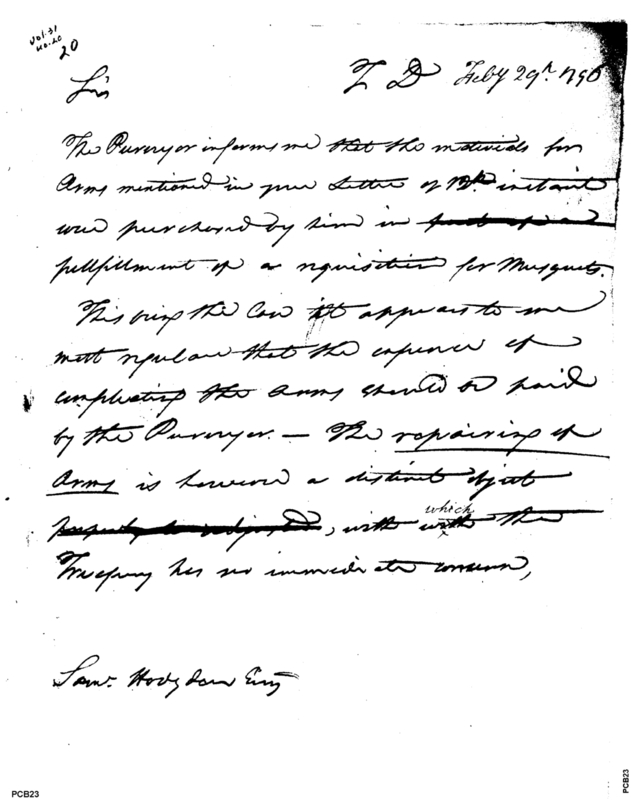 Vol. 31
No. 20
20
T D Feby 29th 1796
Sir
The Purveyor informs me that the materials for
Arms mentioned in your Letter of 12th instant
were purchased by him in
fullfillment of a requisition for Musquets.
This being the Case it appears to me
most regular that the expence of
compleating the Arms should be paid
by the Purveyor. — The repairing of
Arms is however a distinct object
properly to adjusted, with with which the
Treasury has no immediate concern,
Saml. Hodgdon Esq
PCB23
PCB23